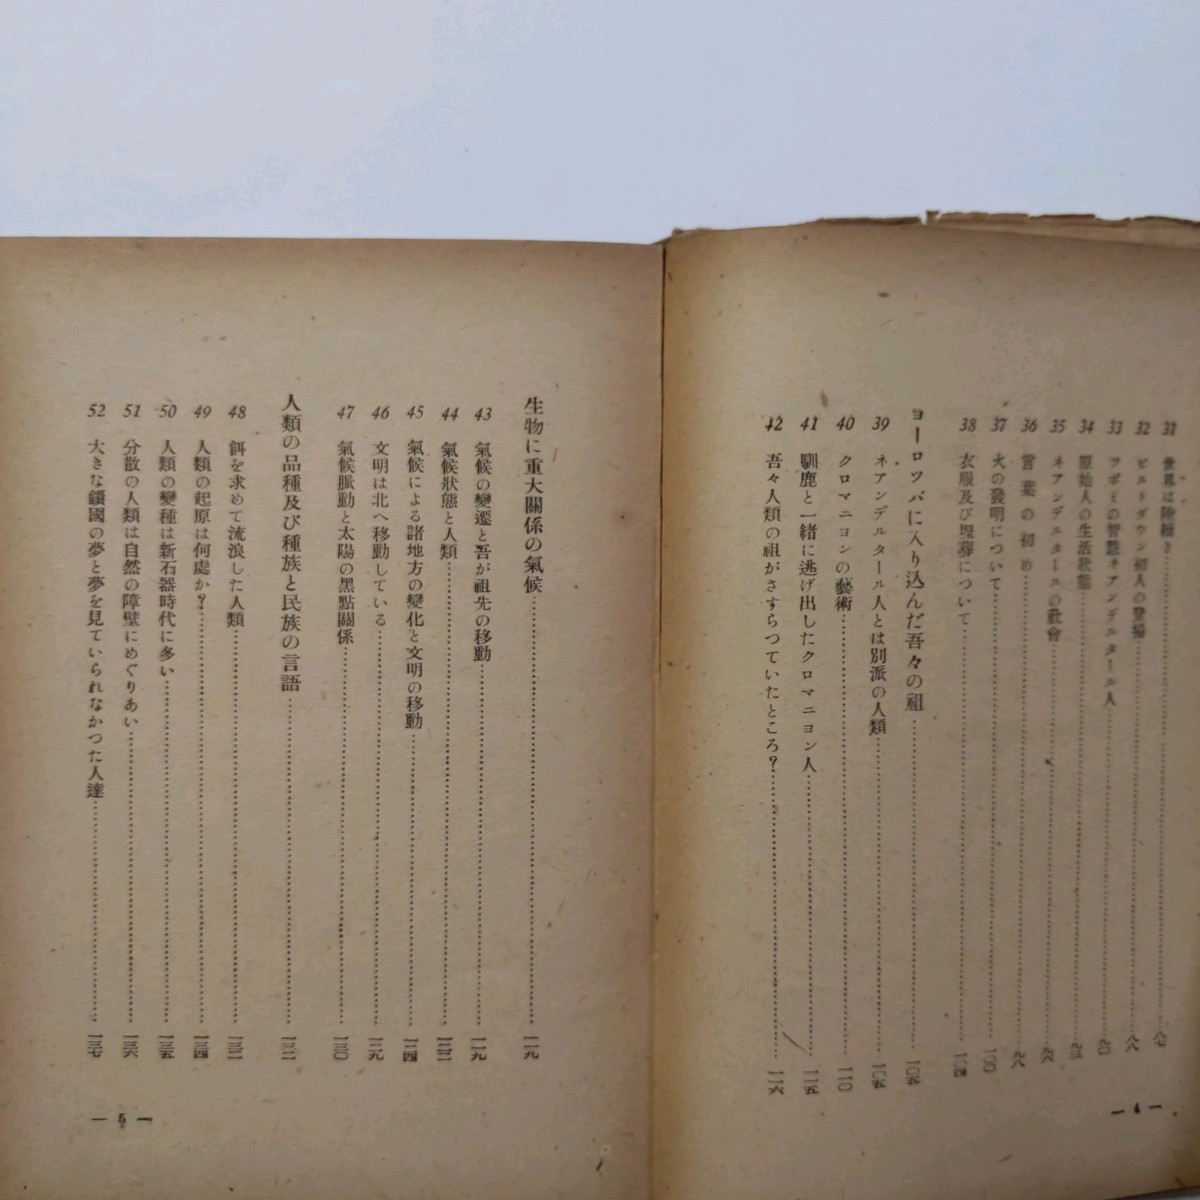 31 世界は陸續き……八七
32 ピルトダウン初人の登場……八八
33 ツボミの智慧ネアンデルタール人……九〇
34 原始人の生活狀態……九三
35 ネアンデルタールの社會……九六
36 言葉の初め……九八
37 火の發明について……一〇〇
38 衣服及び埋葬について……一〇四
ヨーロッパに入り込んだ吾々の祖……一〇五
39 ネアンデルタール人とは別派の人類……一〇五
40 クロマニヨンの藝術……一一〇
41 馴鹿と一緒に逃げ出したクロマニヨン人……一一五
42 吾々人類の祖がさすらつていたところ?……一一六
— 4 —
生物に重大關係の氣候……一一九
43 氣候の變遷と吾が祖先の移動……一一九
44 氣候狀態と人類……
45 氣候による諸地方の變化と文明の移動……一二四
46 文明は北へ移動している……一二九
47 氣候脈動と太陽の黑點關係……一三〇
人類の品種及び種族と民族の言語……
48 餌を求めて流浪した人類……
49 人類の起原は何處か?……一三四
50 人類の變種は新石器時代に多い……一三五
51 分散の人類は自然の障壁にめぐりあい……一三六
52 大きな鎖國の夢と夢を見ていられなかつた人達……一三七
— 5 —